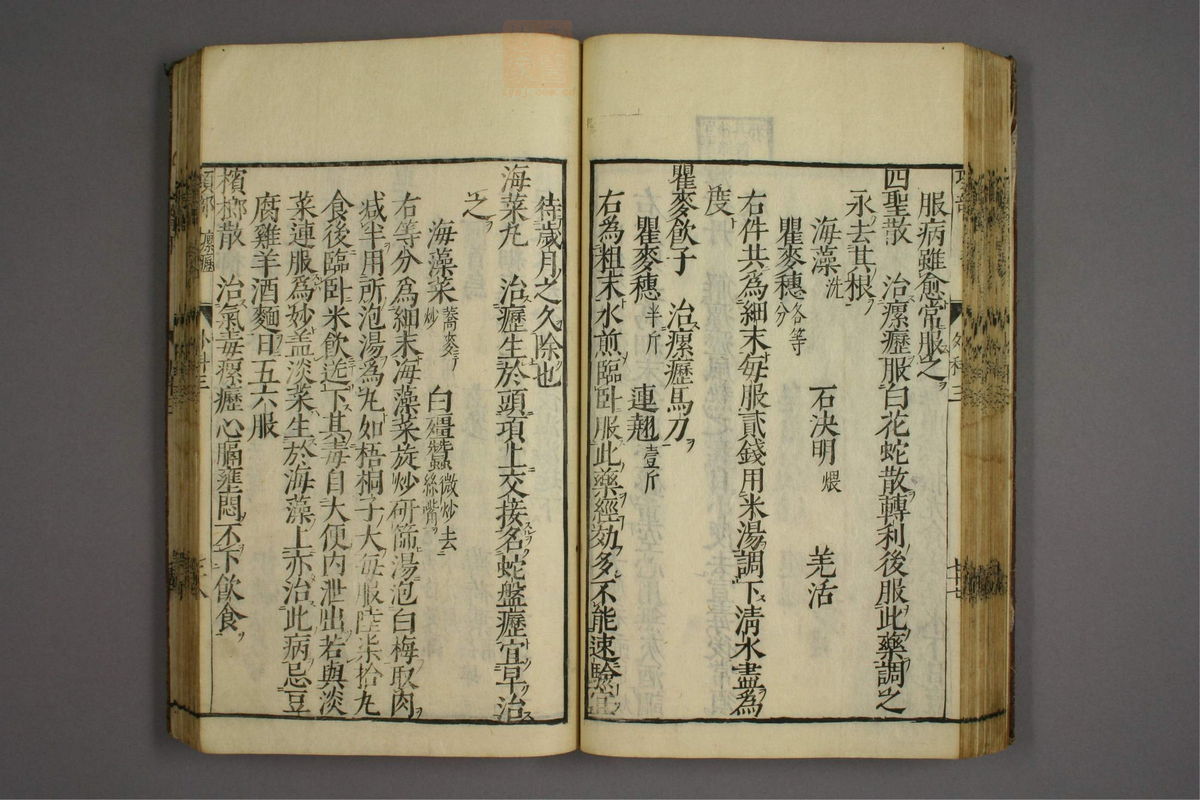 服病雖愈常服之
四聖散 治瘰癧服白花蛇散轉利後服此藥調之
永去其根
海藻洗 石決明煨 羌活
瞿麥穗各等分
右件共為細末每服貳錢用米湯調下清水盡為
度
瞿麥飲子 治瘰癧馬刀
瞿麥穗半斤 連翹壹斤
右為粗末水煎臨臥服此藥經効多不能速驗宜
待歲月之久除也
海菜丸 治癧生於頭項上交接名蛇盤癧宜早治
之
海藻菜蕎麥炒 白殭蠶微炒去絲嘴
右等分為細末海藻菜旋炒研篩湯泡白梅取肉
减半用所泡湯為丸如梧桐子大每服陸柒拾丸
食後臨臥米飲送下其毒自大便內泄出若與淡
菜連服為妙盖淡菜生於海藻上亦治此病忌豆
腐雞羊酒麵日五六服
檳榔散 治氣毒瘰癧心膈壅悶不下飲食